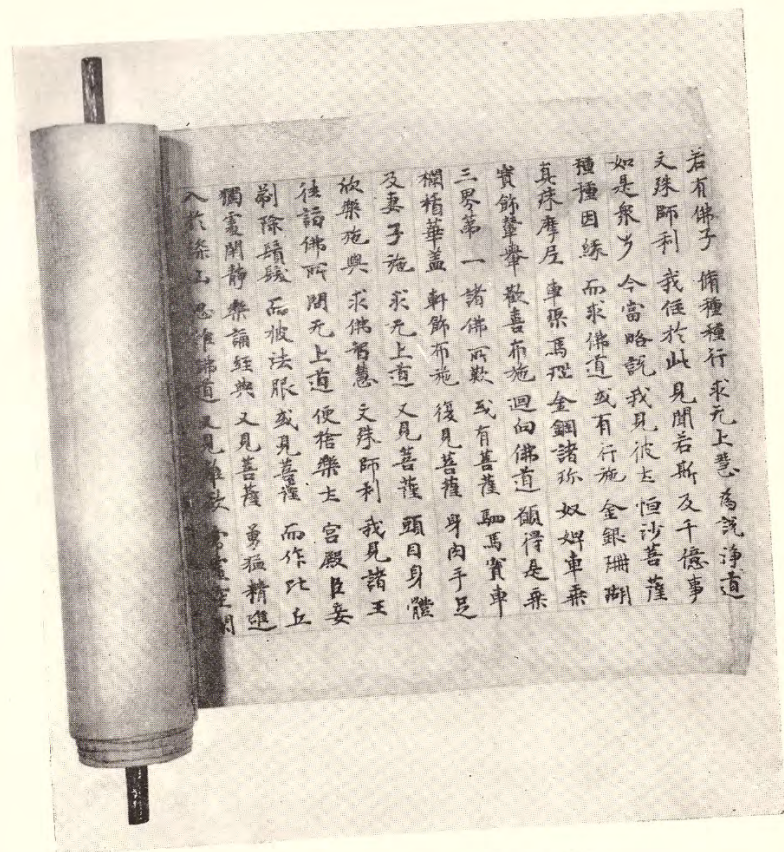 若有佛子 脩種種行 求无上慧 為說淨道
文殊師利 我住於此 見聞若斯 及千億事
如是衆多 今當略說 我見彼土 恒沙菩薩
種種因緣 而求佛道 或有行施 金銀珊瑚
真珠摩尼 車渠馬瑙 金鋼諸珎 奴婢車乘
寶飾輦轝 歡喜布施 迴向佛道 願得是乘
三界第一 諸佛所歎 或有菩薩 駟馬寶車
欄楯華蓋 軒飾布施 復見菩薩 身肉手足
及妻子施 求无上道 又見菩薩 頭目身體
欣樂施與 求佛智慧 文殊師利 我見諸王
往詣佛所 問无上道 便捨樂土 宮殿臣妾
剃除鬚髮 而被法服 或見菩薩 而作比丘
獨處閑靜 樂誦經典 又見菩薩 勇猛精進
入於深山 思惟佛道 又見離欲 常處空閑